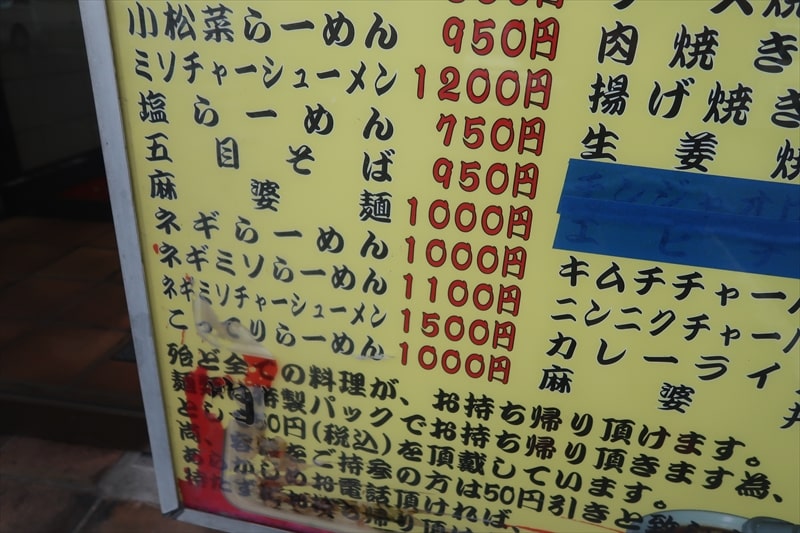 00円
小松菜らーめん 950円
ミソチャーシューメン 1200円
塩らーめん 750円
五目そば 950円
麻婆麺 1000円
ネギらーめん 1000円
ネギミソらーめん 1100円
ネギミソチャーシューメン 1500円
こってりらーめん 1000円
ス焼
肉焼き
揚げ焼き
生姜焼
エビチ
キムチチャー
ニンニクチャー
カレーライ
麻婆丼
殆ど全ての料理が、お持ち帰り頂けます。
製パックでお持ち帰り頂きます為、
50円(税込)を頂戴しています。
をご持参の方は50円引きと致
あらかじめお電話頂ければ、
待たずにお持ち帰り頂け